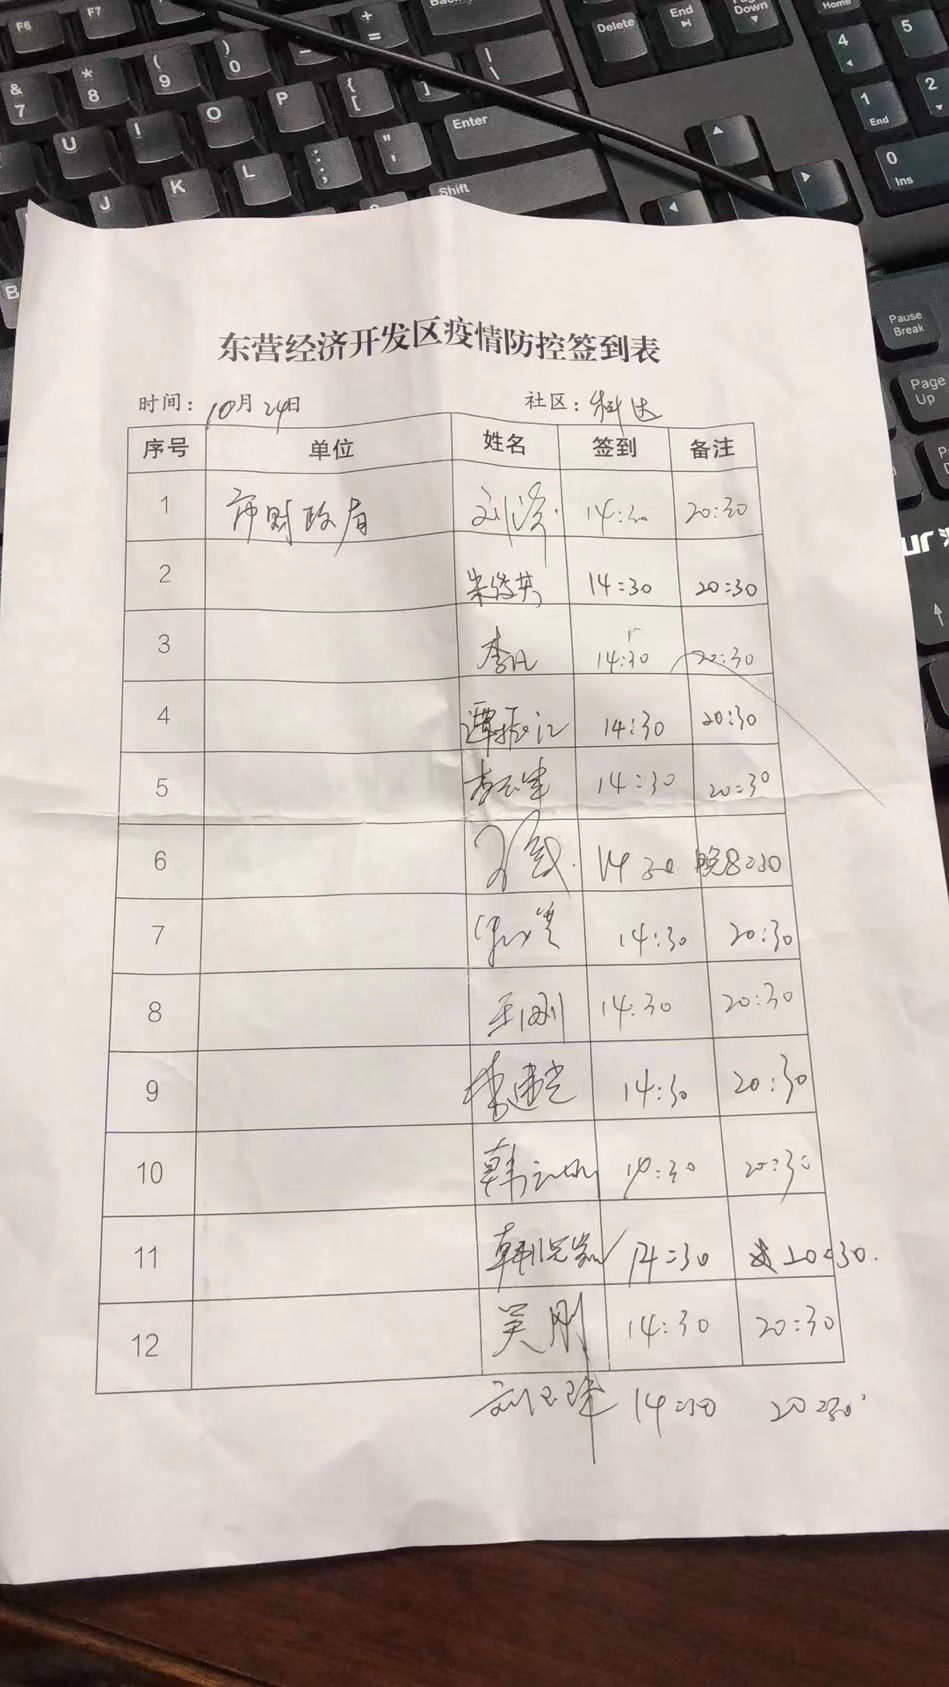 F6 F7 + = Delete End Page Down Home
& 7 * 8 ( 9 ) 0 | \ 4 5
U I O P { [ ] Enter 1 End 2
J K L : ; " ' Shift 0 Ins
B
Pause Break
Page Up
东营经济开发区疫情防控签到表
时间：10月24日 社区：科达
序号 单位 姓名 签到 备注
1 市财政局 14:30 20:30
2 14:30 20:30
3 李凡 14:30 20:30
4 谭振江 14:30 20:30
5 14:30 20:30
6 14:30 晚8:30
7 14:30 20:30
8 王刚 14:30 20:30
9 李建光 14:30 20:30
10 韩 14:30 20:30
11 韩 14:30 20:30.
12 吴刚 14:30 20:30
14:30 20:30